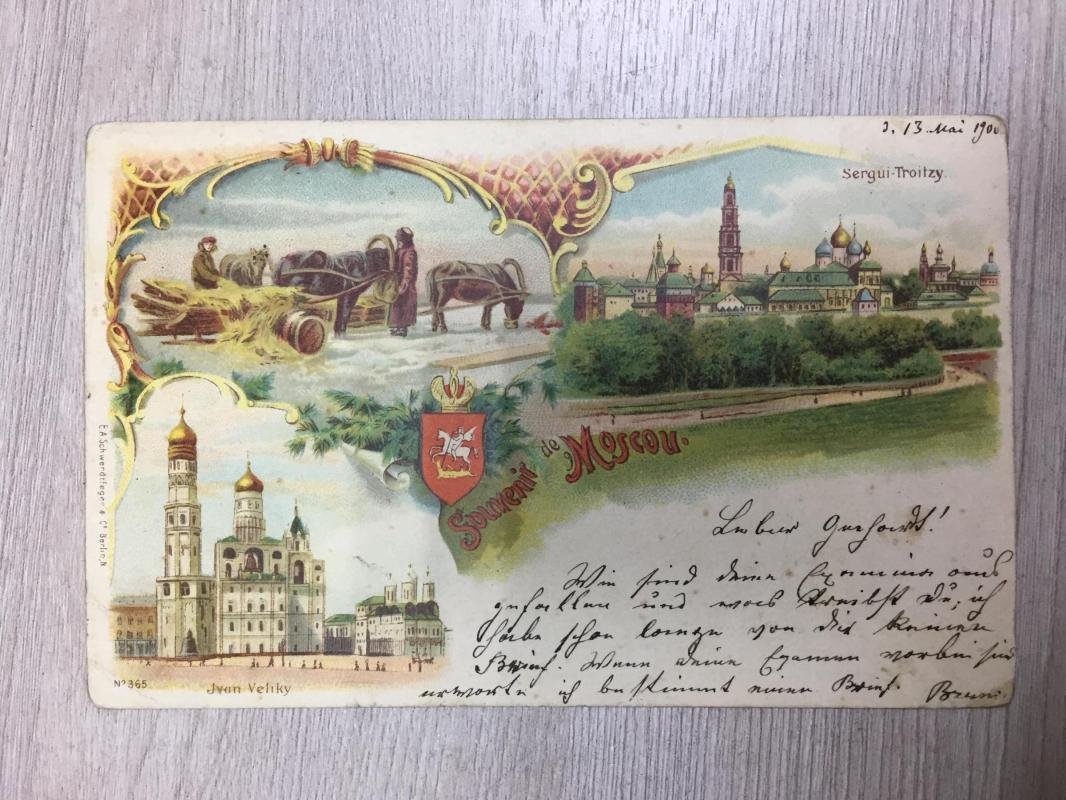 d. 13 Mai 1900
Sergui-Troitzy.
Souvenir de Moscou.
E.A.Schwerdtfeger & Co Berlin.N
Lieber Gerhardt!
Wie sind deine Examina aus
gefallen und was treibst du, ich
habe schon lange von dir keinen
Brief. Wenn deine Examen vorbei sind
erwarte ich bestimmt einen Brief.
No 365.
Jvan Veliky